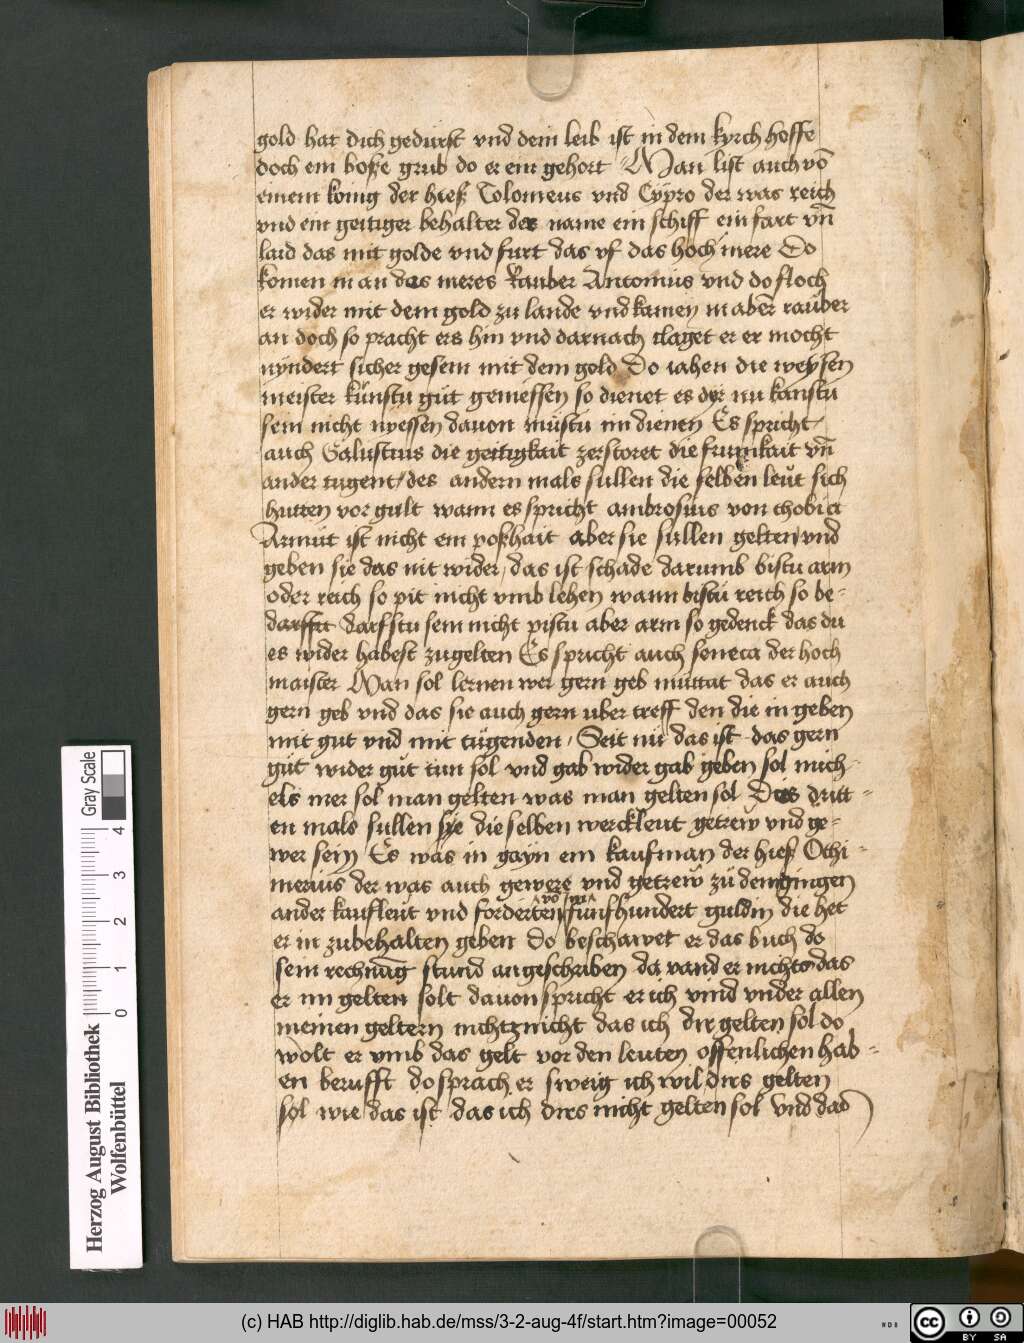 gold hat dich gedurst vnd dein leib ist in dem kyrch hoffe
doch ein boße grub do er ein gehort Man list auch vō
einem konig der hieß Tolomeus vnd Cypro der was reich
vnd ein geitiger behalter der name ein schiff ein fart vn̄
laid das mit golde vnd furt das vf das hoch mere Do
komen in an des meres Rauber Antonius vnd do floch
er wider mit dem gold zu lande vnd kamen in aber rauber
an doch so pracht ers hin vnd darnach claget er er mocht
nyndert sicher gesein mit dem gold Do iahen die weysen
meister kunstu gut geniessen so dienet es dyr nu kanstu
sein nicht nyessen dauon mustu im dienen Es spricht
auch Salustius die geitigkait zerstoret die frumkait vn̄
ander tugent des andern mals sullen die selben leut sich
hutten vor gult wann es spricht ambrosius von thobia
Armut ist nicht ein poßhait aber sie sullen gelten vnd
geben sie das nit wider das ist schade darumb bistu arm
oder reich so pit nicht vmb lehen wann bistu reich so be-
darfstu sein nicht pistu aber arm so gedenck das du
es wider habest zugelten Es spricht auch seneca der hoch
maister Man sol lernen wer gern geb das er auch
gern geb vnd das sie auch gern uber treff den die in geben
mit gut vnd mit tugenden Seit nu das ist das gern
gut wider gut tun sol vnd gab wider gab geben sol mich-
els mer sol man gelten was man gelten sol Des dritt-
en mals sullen sye die selben werckleut getrew vnd ge-
wer sein Es was in gayn ein kaufman der hieß Othi-
merius der was auch gewere vnd getrew zu dem gingen
ander kaufleut vnd forderten vō im funfhundert guldin die het
er in zubehalten geben Do beschawet er das buch do
sein rechnūg stund angeschriben da vand er nichts das
er im gelten solt dauon spricht er ich vind vnder allen
meinen geltern nichtznicht das ich dir gelten sol do
wolt er vmb das gelt vor den leuten offenlichen hab-
en berufft do sprach er sweig ich wil dirs gelten
sol wie das ist das ich dirs nicht gelten sol Vnd das
Gray Scale
0 1 2 3 4
Herzog August Bibliothek
Wolfenbüttel
(c) HAB http://diglib.hab.de/mss/3-2-aug-4f/start.htm?image=00052
WDB
cc BY SA